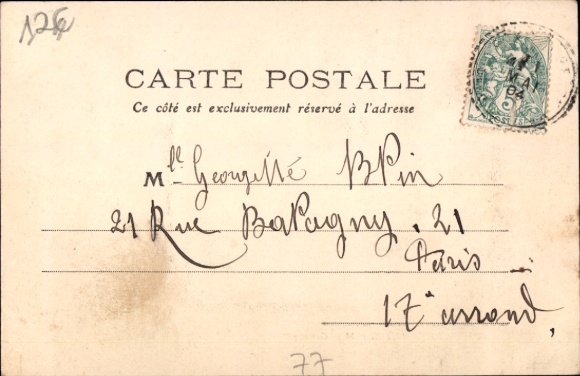 12€
CARTE POSTALE
Ce côté est exclusivement réservé à l'adresse
5
MAI
04
Mlle Georgette
21 Rue BaPagny. 21
Paris
17e arrond,
77